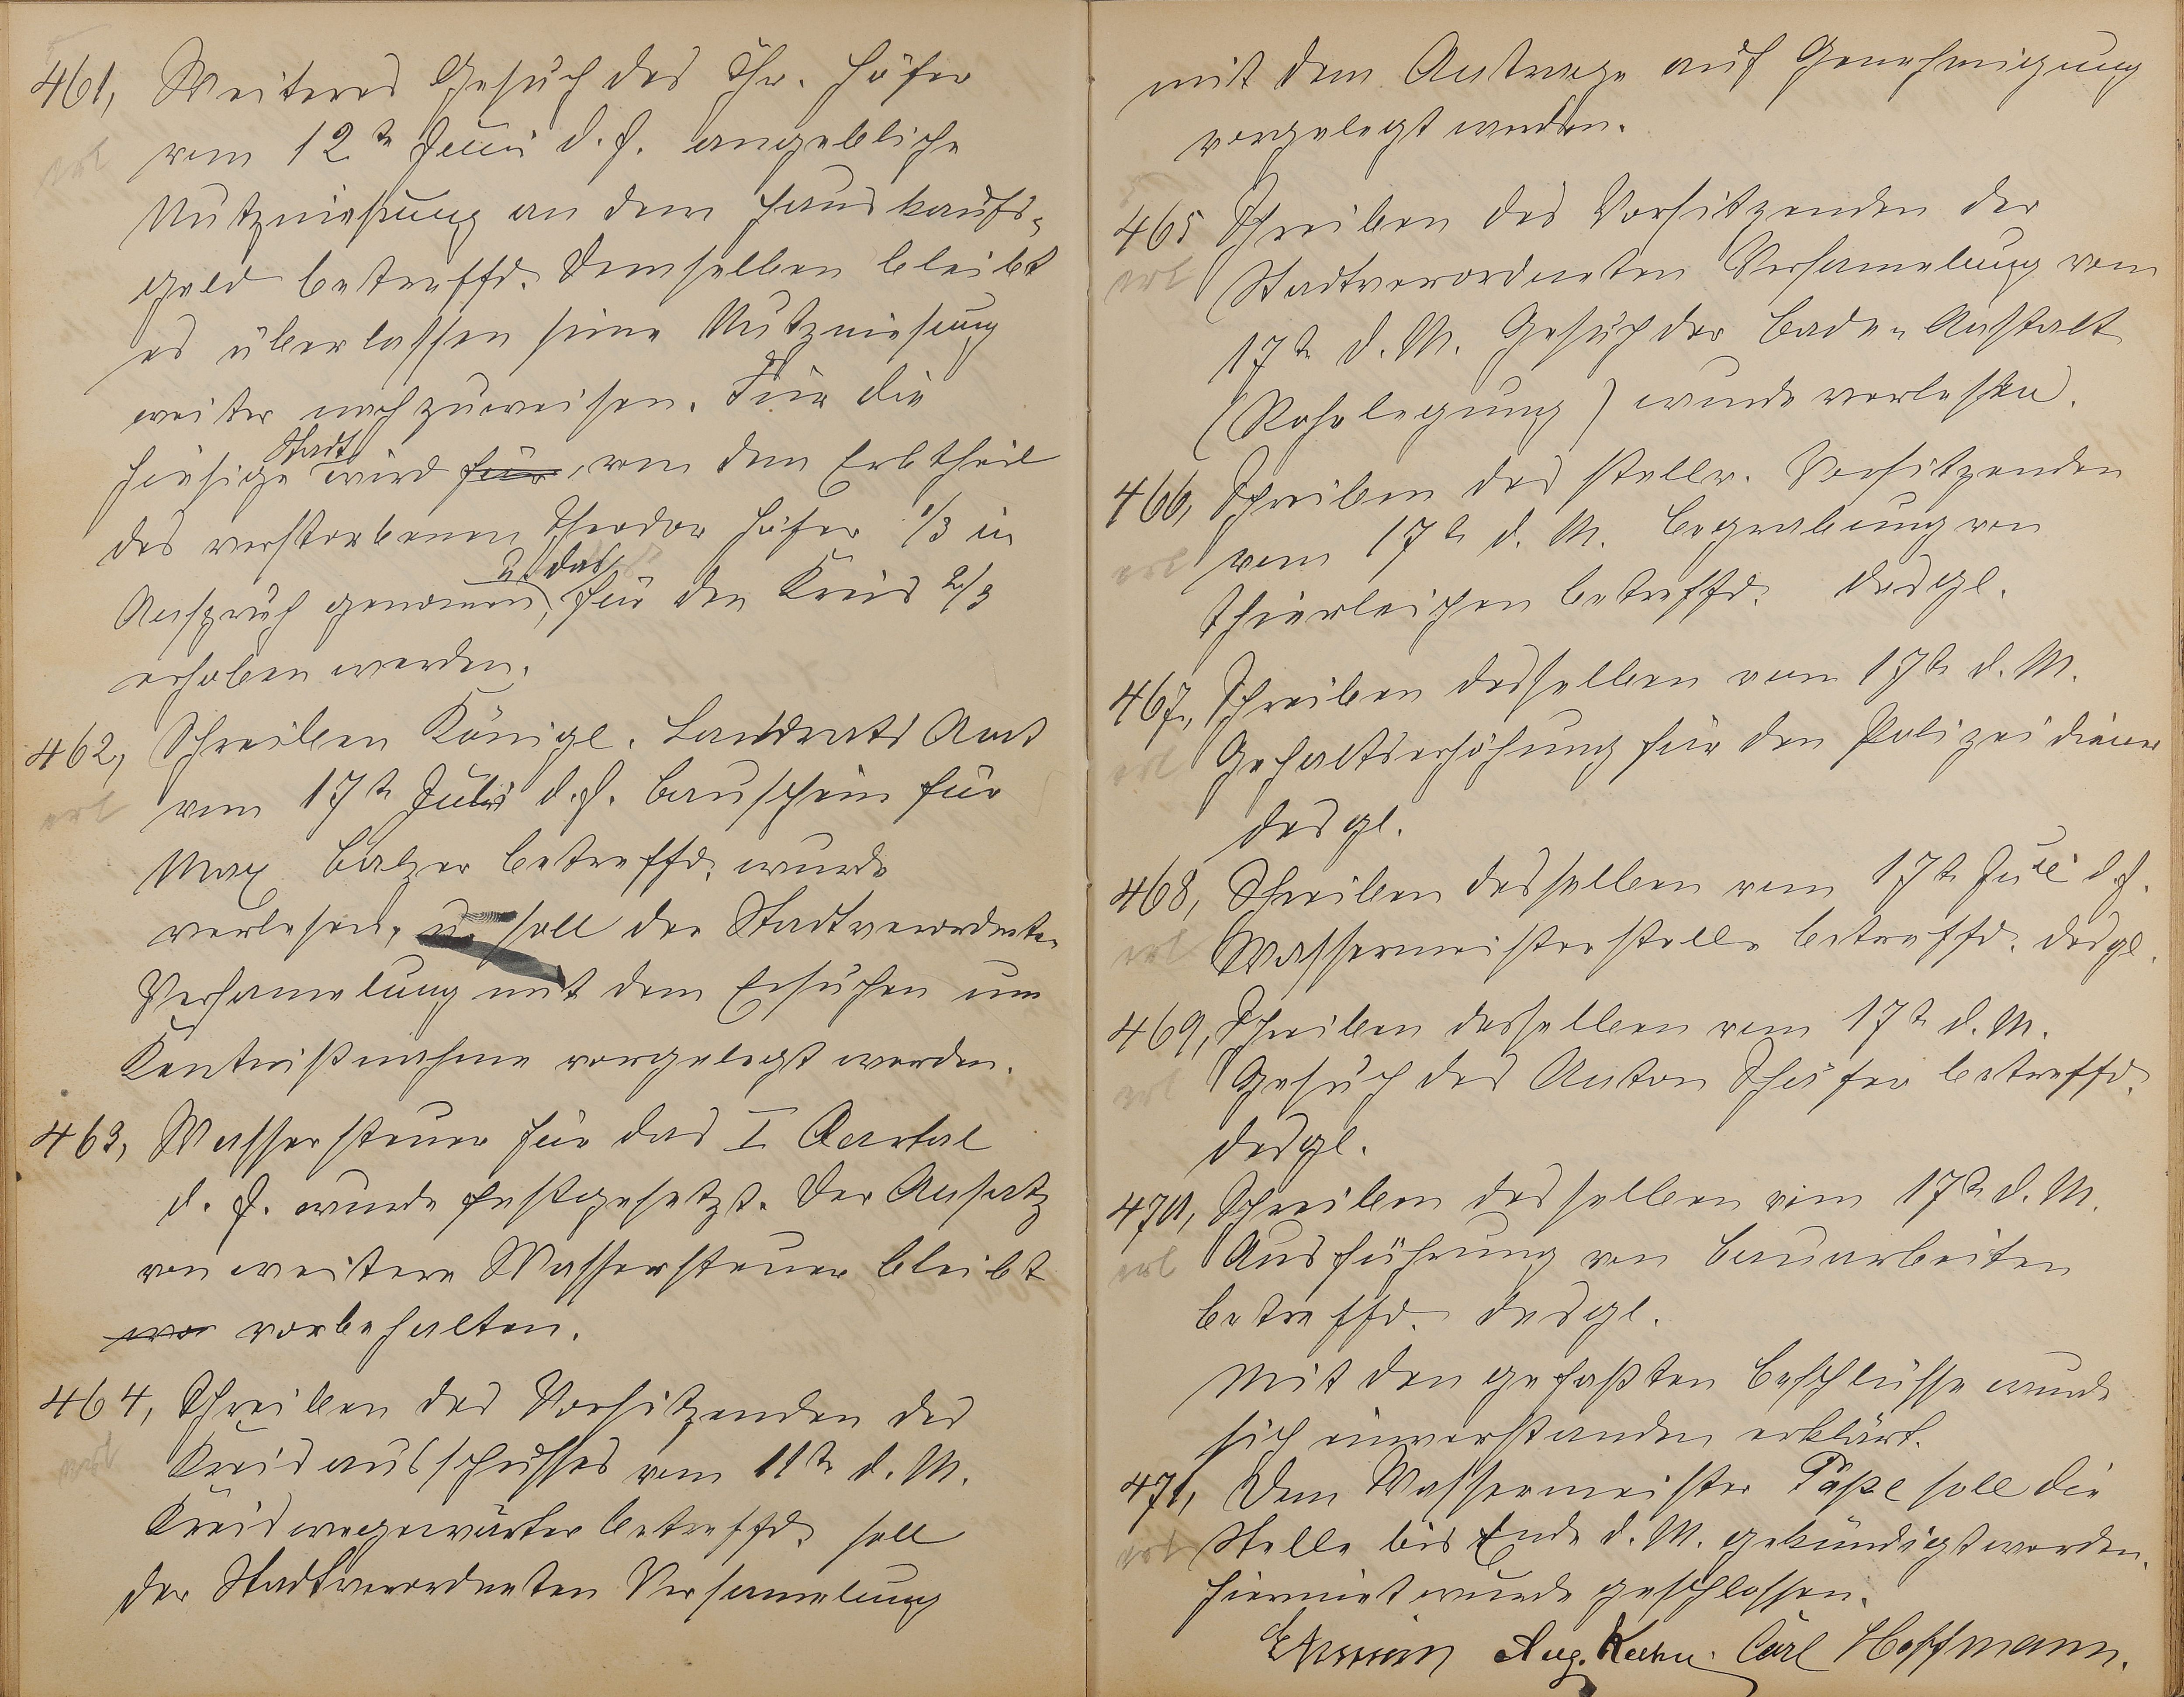 461, Weiteres Gesuch des Chr. Höfer
erl vom 12te Juni d. J. angebliche
Nutznießung an dem Hauskaufs-
geld betreffd. Demselben bleibt
es überlassen seine Nutzniesung
weiter nachzuweisen. Für die
hiesige Stadt wird für von dem Erbtheil
des verstorbenen Theodor Höfer 1/3 in
Anspruch genomen, u. das für den Kreis 2/3
erhoben werden.
462, Schreiben Königl. Landrats Amt
erl vom 17te Juli d. J. Bauschein für
Max Balzer betreffd. wurde
verlesen, u. soll der Stadtverordneten
Versamelung mit dem Ersuchen um
Kentnißnahme vorgelegt werden.
463, Wassersteuer für das I Quartal
d. J. wurde festgesetzt. Der Ansatz
von weitere Wassersteuer bleibt
vor vorbehalten.
464, Schreiben des Vorsitzenden des
erl Kreisausschusses vom 11te d. M.
Kreiswegewärter betreffd. soll
der Stadtverordneten Versamelung
mit dem Antrage auf Genehmigung
vorgelegt werden.
465 Schreiben des Vorsitzenden der
erl Stadtverordneten Versamelung vom
17te d. M. Gesuch der Bade-Anstalt
(Rohrlegung) wurde verlesen.
466, Schreiben des stellv. Vorsitzenden
erl vom 17te d. M. Begrabung von
Thierleichen betreffd. desgl.
467, Schreiben desselben vom 17te d. M.
erl Gehaltserhöhung für den Polizeidiener
desgl.
468, Schreiben desselben vom 17te Juli d. J.
erl Wassermeisterstelle betreffd. desgl.
469, Schreiben desselben vom 17te d. M.
erl Gesuch des Anton Schäfer betreffd.
desgl.
470, Schreiben desselben vom 17te d. M.
erl Ausführung von Bauarbeiten
betreffd. desgl.
Mit den gefaßten Beschlüsse wurde
sich einverstanden erklärt.
471, Dem Wassermeister Pape soll die
erl Stelle bis Ende d. M. gekündigt werden.
Hiermit wurde geschlossen.
Aug. Kuhn. Carl Hoffmann.